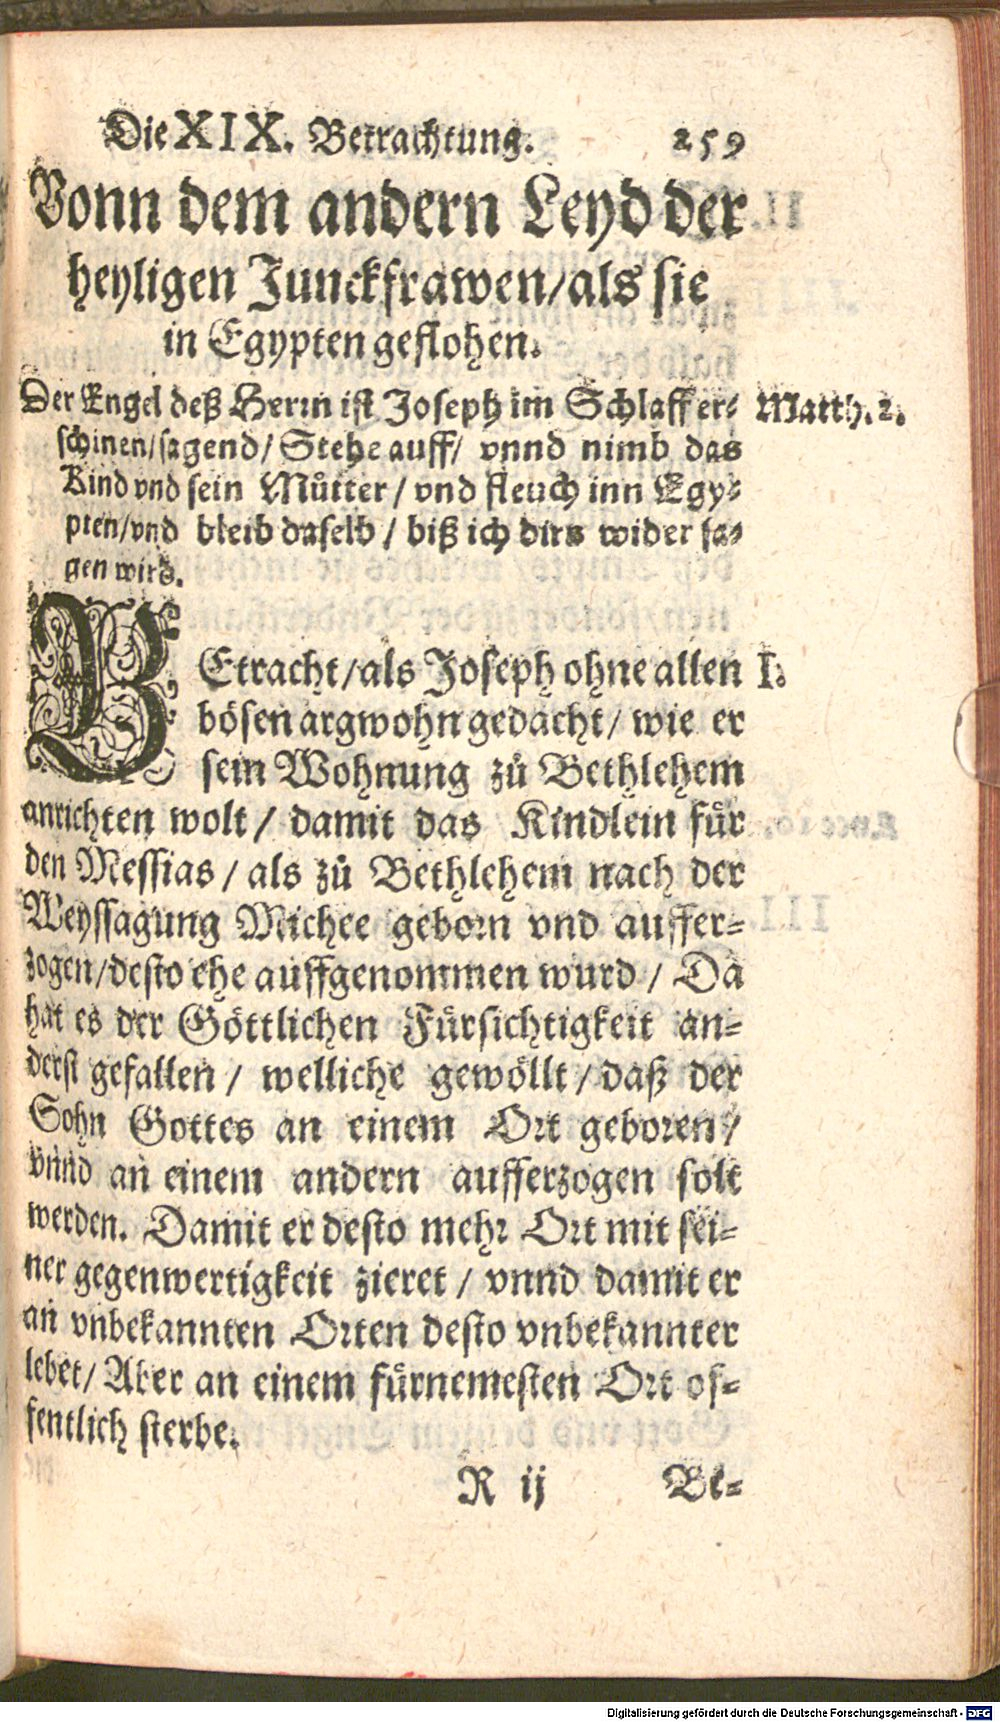 Die XIX. Betrachtung. 259
Vonn dem andern Leyd der
heyligen Junckfrawen/als sie
in Egypten geflohen.
Der Engel deß Herrn ist Joseph im Schlaff er-
schinen/sagend/ Stehe auff/ vnnd nimb das
Kind vnd sein Můtter / vnd fleuch inn Egy-
pten/vnd bleib daselb / biß ich dirs wider sa-
gen wird.
Matth. 2.
BEtracht/als Joseph ohne allen
I.
bösen argwohn gedacht/ wie er
sein Wohnung zů Bethlehem
anrichten wolt / damit das Kindlein für
den Messias / als zů Bethlehem nach der
Weyssagung Michee geborn vnd auffer-
zogen/desto ehe auffgenommen wurd / Da
hat es der Göttlichen Fürsichtigkeit an-
derst gefallen / welliche gewöllt / daß der
Sohn Gottes an einem Ort geboren /
vnnd an einem andern aufferzogen solt
werden. Damit er desto mehr Ort mit sei-
ner gegenwertigkeit zieret / vnnd damit er
an vnbekannten Orten desto vnbekannter
lebet/ Aber an einem fürnemesten Ort of-
fentlich sterbe.
R ij Be-
Digitalisierung gefördert durch die Deutsche Forschungsgemeinschaft - DFG